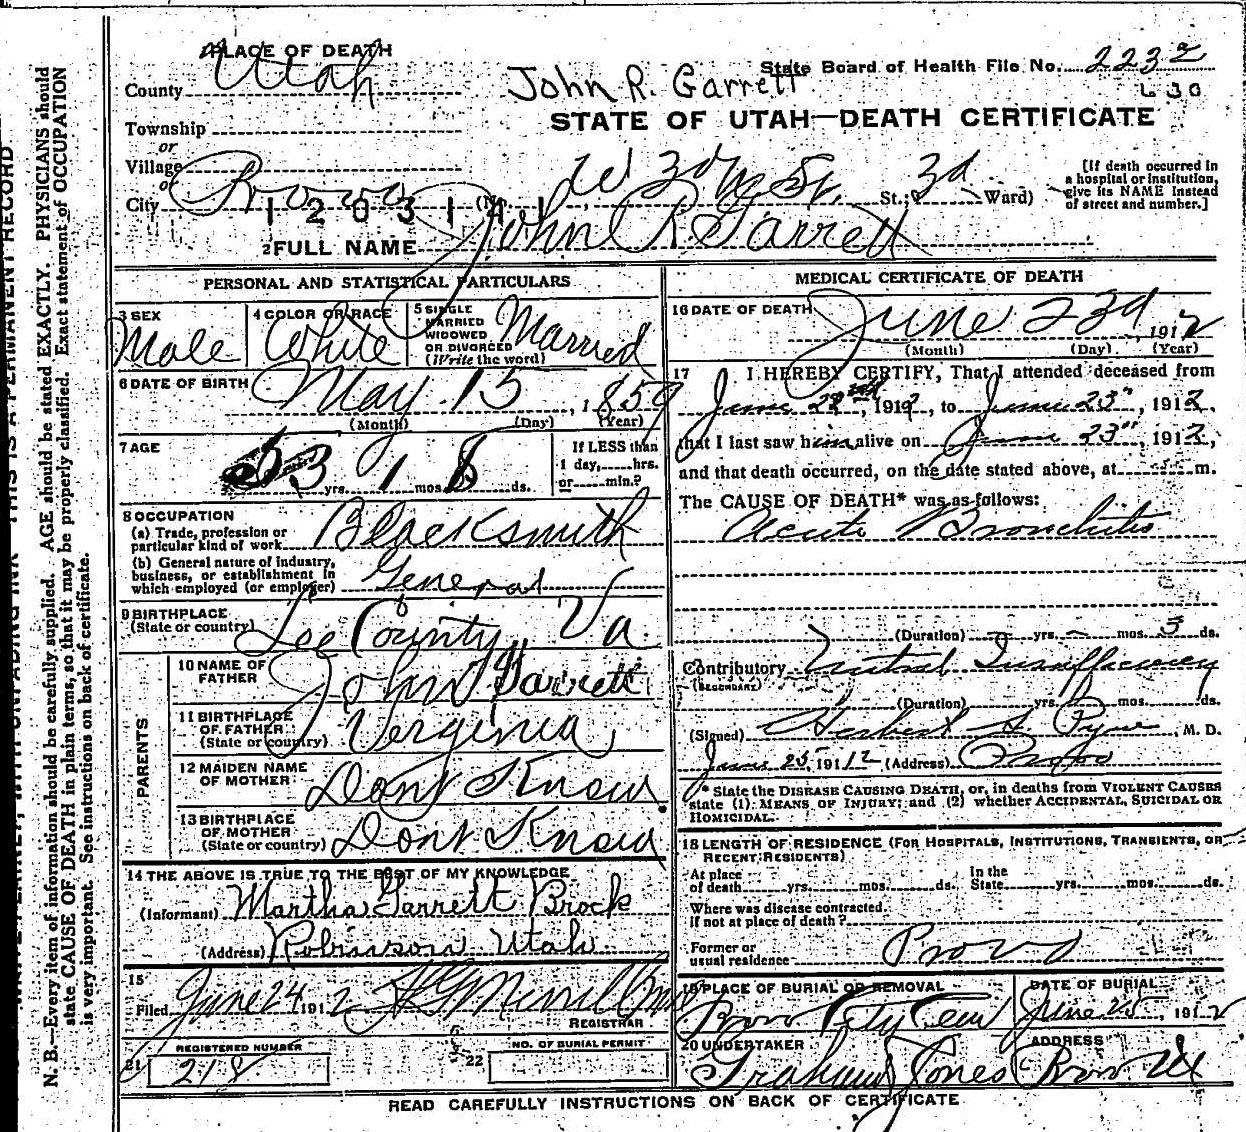 PLACE OF DEATH
County Utah
John R. Garrett
State Board of Health File No. 223a
630
STATE OF UTAH—DEATH CERTIFICATE
Township
or
Village
or
City Provo (No. W 3d St. St.; 3d Ward)
[If death occurred in a hospital or institution, give its NAME instead of street and number.]
2 FULL NAME John R Garrett
PERSONAL AND STATISTICAL PARTICULARS
3 SEX Male
4 COLOR OR RACE White
5 SINGLE MARRIED WIDOWED OR DIVORCED (Write the word) Married
6 DATE OF BIRTH May 15, 1859
(Month) (Day) (Year)
7 AGE 53 yrs. 1 mos. 8 ds.
If LESS than 1 day, hrs. or min.?
8 OCCUPATION
(a) Trade, profession or particular kind of work Blacksmith
(b) General nature of industry, business, or establishment in which employed (or employer) General
9 BIRTHPLACE (State or country) Lee County, Va.
PARENTS
10 NAME OF FATHER John Garrett
11 BIRTHPLACE OF FATHER (State or country) Verginia
12 MAIDEN NAME OF MOTHER Dont Know
13 BIRTHPLACE OF MOTHER (State or country) Dont Know
14 THE ABOVE IS TRUE TO THE BEST OF MY KNOWLEDGE
(Informant) Martha Garrett Brock
(Address) Robinson Utah
15
Filed June 24 1912
REGISTRAR
21 REGISTERED NUMBER 218
22 NO. OF BURIAL PERMIT
MEDICAL CERTIFICATE OF DEATH
16 DATE OF DEATH June 23d, 1912
(Month) (Day) (Year)
17 I HEREBY CERTIFY, That I attended deceased from
June 22, 1912, to June 23", 1912,
that I last saw him alive on June 23", 1912,
and that death occurred, on the date stated above, at m.
The CAUSE OF DEATH* was as follows:
Acute Bronchitis
(Duration) yrs. mos. 5 ds.
Contributory Mitral Insufficiency
(SECONDARY)
(Duration) yrs. mos. ds.
(Signed) Herbert S. Pyne, M. D.
June 25, 1912 (Address) Provo
* State the DISEASE CAUSING DEATH, or, in deaths from VIOLENT CAUSES
state (1) MEANS OF INJURY; and (2) whether ACCIDENTAL, SUICIDAL OR
HOMICIDAL.
18 LENGTH OF RESIDENCE (FOR HOSPITALS, INSTITUTIONS, TRANSIENTS, OR
RECENT RESIDENTS)
At place of death yrs. mos. ds. In the State yrs. mos. ds.
Where was disease contracted
if not at place of death?
Former or usual residence Provo
19 PLACE OF BURIAL OR REMOVAL Provo City Cem
DATE OF BURIAL June 25, 1912
20 UNDERTAKER Graham Jones
ADDRESS Provo Ut
READ CAREFULLY INSTRUCTIONS ON BACK OF CERTIFICATE
THIS IS A PERMANENT RECORD
N. B.—Every item of information should be carefully supplied. AGE should be stated EXACTLY. PHYSICIANS should
state CAUSE OF DEATH in plain terms, so that it may be properly classified. Exact statement of OCCUPATION
is very important. See instructions on back of certificate.